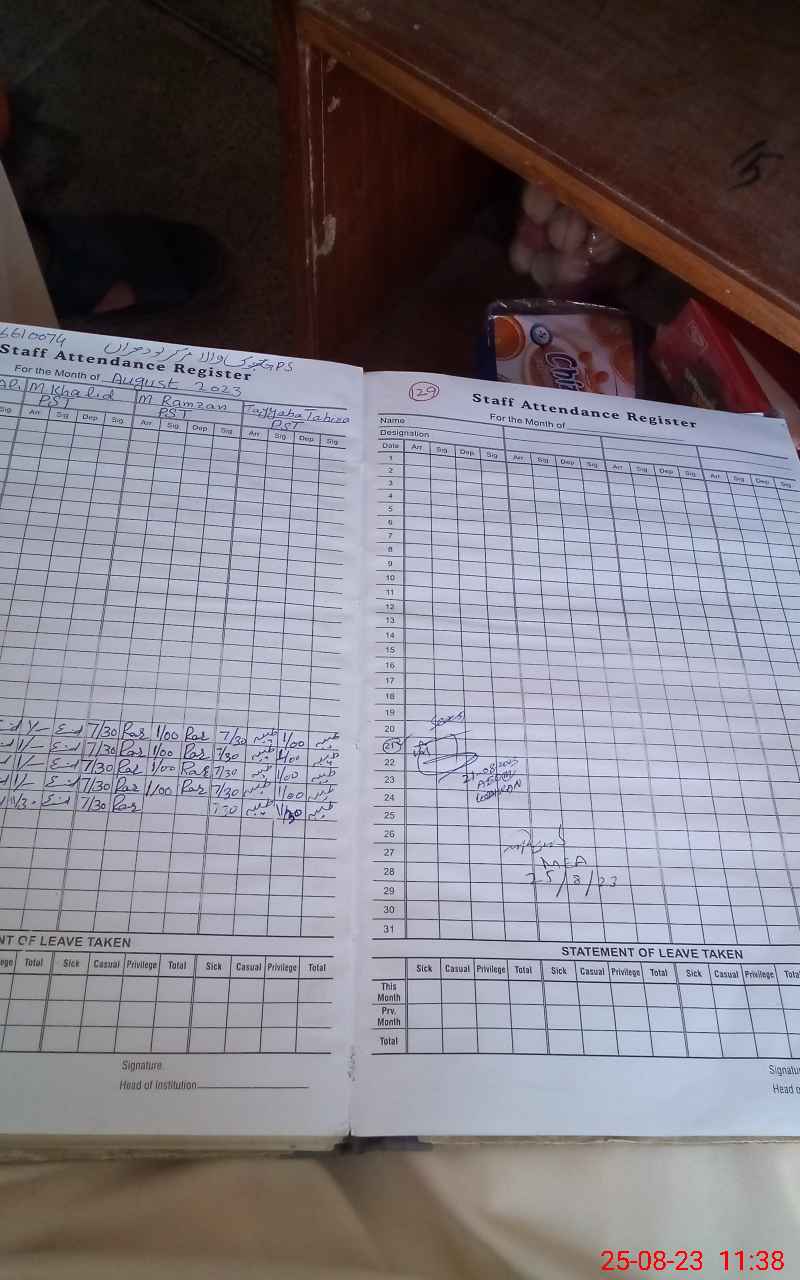 6610074
GPS
Staff Attendance Register
For the Month of August 2023
Ali M Khalid M Ramzan Tayyaba Tahira
PST PST
Sig Arr. Sig. Dep. Sig. Arr. Sig. Dep. Sig. Arr. Sig. Dep. Sig.
7/30 Ras 1/00 Ras 7/30 طیبہ 1/00 طیبہ
7/30 Ras 1/00 Ras 7/30 طیبہ 1/00 طیبہ
7/30 Ras 1/00 Ras 7/30 طیبہ 1/00 طیبہ
7/30 Ras 1/00 Ras 7/30 طیبہ 1/00 طیبہ
7/30 Ras 7/30 طیبہ طیبہ
NT OF LEAVE TAKEN
ege Total Sick Casual Privilege Total Sick Casual Privilege Total
Signature.
Head of Institution
29
Staff Attendance Register
For the Month of
Name
Designation
Date Arr. Sig. Dep. Sig. Arr. Sig. Dep. Sig. Arr. Sig. Dep. Sig. Arr. Sig. Dep. Sig.
1
2
3
4
5
6
7
8
9
10
11
12
13
14
15
16
17
18
19
20
21
22
23
24
25
26
27
28
29
30
31
21-08-2023
LODHRAN
MEA
25/8/23
STATEMENT OF LEAVE TAKEN
Sick Casual Privilege Total Sick Casual Privilege Total Sick Casual Privilege Total
This Month
Prv. Month
Total
Signatu
Head o
Chi
25-08-23 11:38